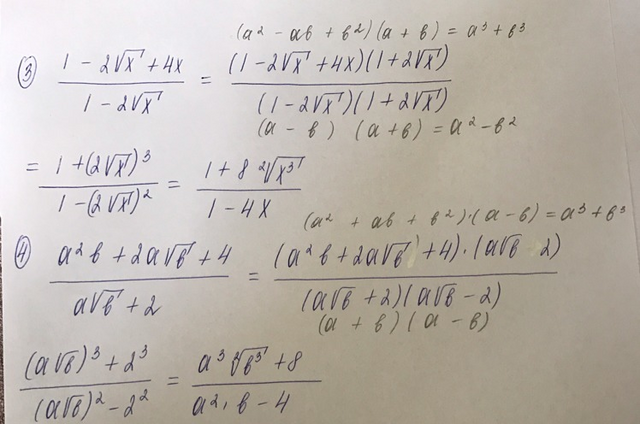 (a² - ab + b²)(a + b) = a³ + b³
③ (1 - 2√x + 4x)/(1 - 2√x) = ((1 - 2√x + 4x)(1 + 2√x))/((1 - 2√x)(1 + 2√x))
(a - b) (a + b) = a² - b²
= (1 + (2√x)³)/(1 - (2√x)²) = (1 + 8 ²√x³)/(1 - 4x)
(a² + ab + b²)·(a - b) = a³ + b³
④ (a²b + 2a√b + 4)/(a√b + 2) = ((a²b + 2a√b + 4)·(a√b - 2))/((a√b + 2)(a√b - 2))
(a + b)(a - b)
((a√b)³ + 2³)/((a√b)² - 2²) = (a³ ²√b³ + 8)/(a²·b - 4)